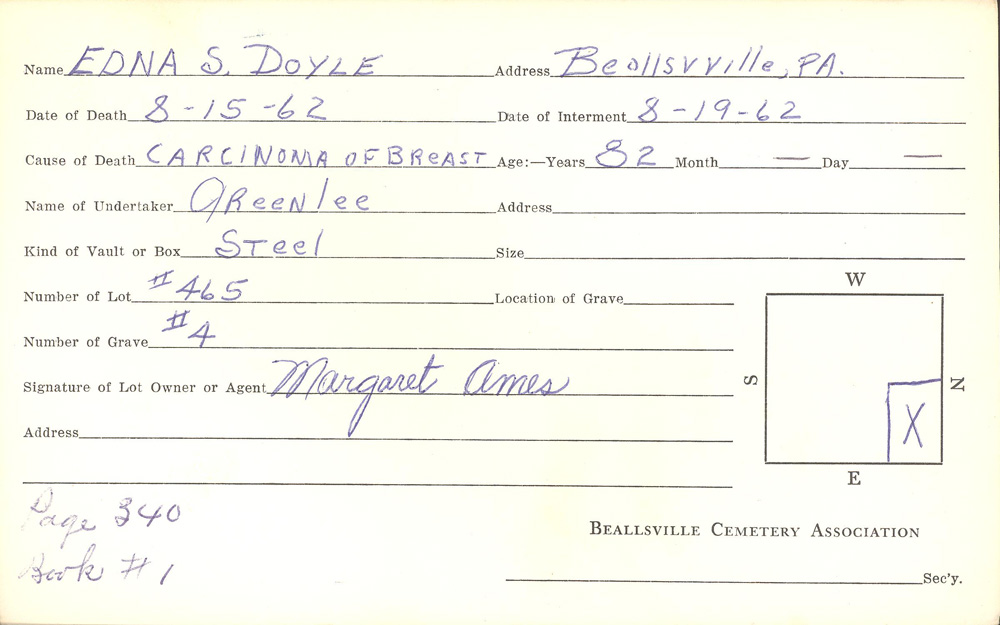 Name EDNA S. DOYLE Address Beallsvville, PA.
Date of Death 8-15-62 Date of Interment 8-19-62
Cause of Death CARCINOMA OF BREAST Age:—Years 82 Month — Day —
Name of Undertaker Greenlee Address
Kind of Vault or Box Steel Size
Number of Lot #465 Location of Grave
Number of Grave #4
Signature of Lot Owner or Agent Margaret Ames
Address
W
S
N
X
E
Page 340
Book #1
BEALLSVILLE CEMETERY ASSOCIATION
Sec'y.